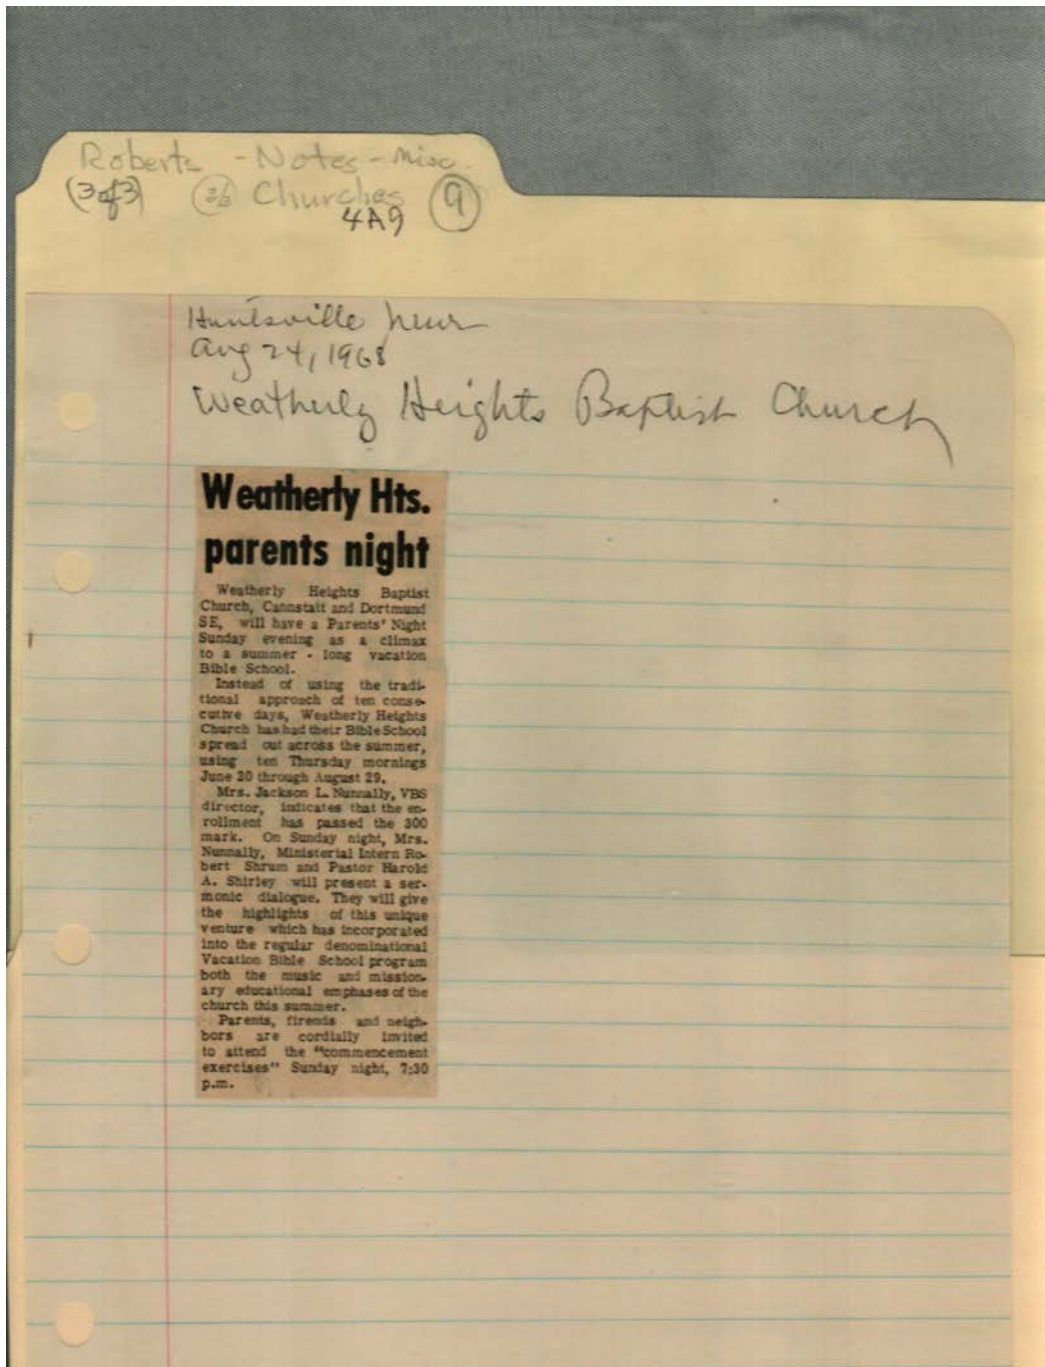 Roberts - Notes - Misc.
(3 of 3) Churches 9
4A9
Huntsville News
Aug 24, 1968
Weatherly Heights Baptist Church
Weatherly Hts.
parents night
Weatherly Heights Baptist
Church, Cannstatt and Dortmund
SE, will have a Parents' Night
Sunday evening as a climax
to a summer - long vacation
Bible School.
Instead of using the tradi-
tional approach of ten conse-
cutive days, Weatherly Heights
Church has had their Bible School
spread out across the summer,
using ten Thursday mornings
June 20 through August 29.
Mrs. Jackson L. Nunnally, VBS
director, indicates that the en-
rollment has passed the 300
mark. On Sunday night, Mrs.
Nunnally, Ministerial Intern Ro-
bert Shrum and Pastor Harold
A. Shirley will present a ser-
monic dialogue. They will give
the highlights of this unique
venture which has incorporated
into the regular denominational
Vacation Bible School program
both the music and mission-
ary educational emphases of the
church this summer.
Parents, firends and neigh-
bors are cordially invited
to attend the "commencement
exercises" Sunday night, 7:30
p.m.